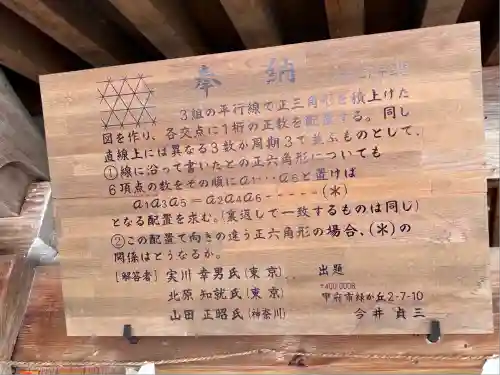 奉 納
3組の平行線で正三角形を積上げた
図を作り、各交点に1桁の正数を配置する。同じ
直線上には異なる3数が周期3で並ぶものとして、
①線に沿って書いたとの正六角形についても
6頂点の数をその順にa₁‥‥a₆と置けば
a₁a₃a₅=a₂a₄a₆------(*)
となる配置を求む。(裏返して一致するものは同じ)
②この配置で向きの違う正六角形の場合、(*)の
関係はとうなるか。
[解答者] 実川 幸男氏(東京) 出題
〒400-0006
北原 知就氏(東京) 甲府市緑が丘2-7-10
山田 正昭氏(神奈川) 今井 貞三